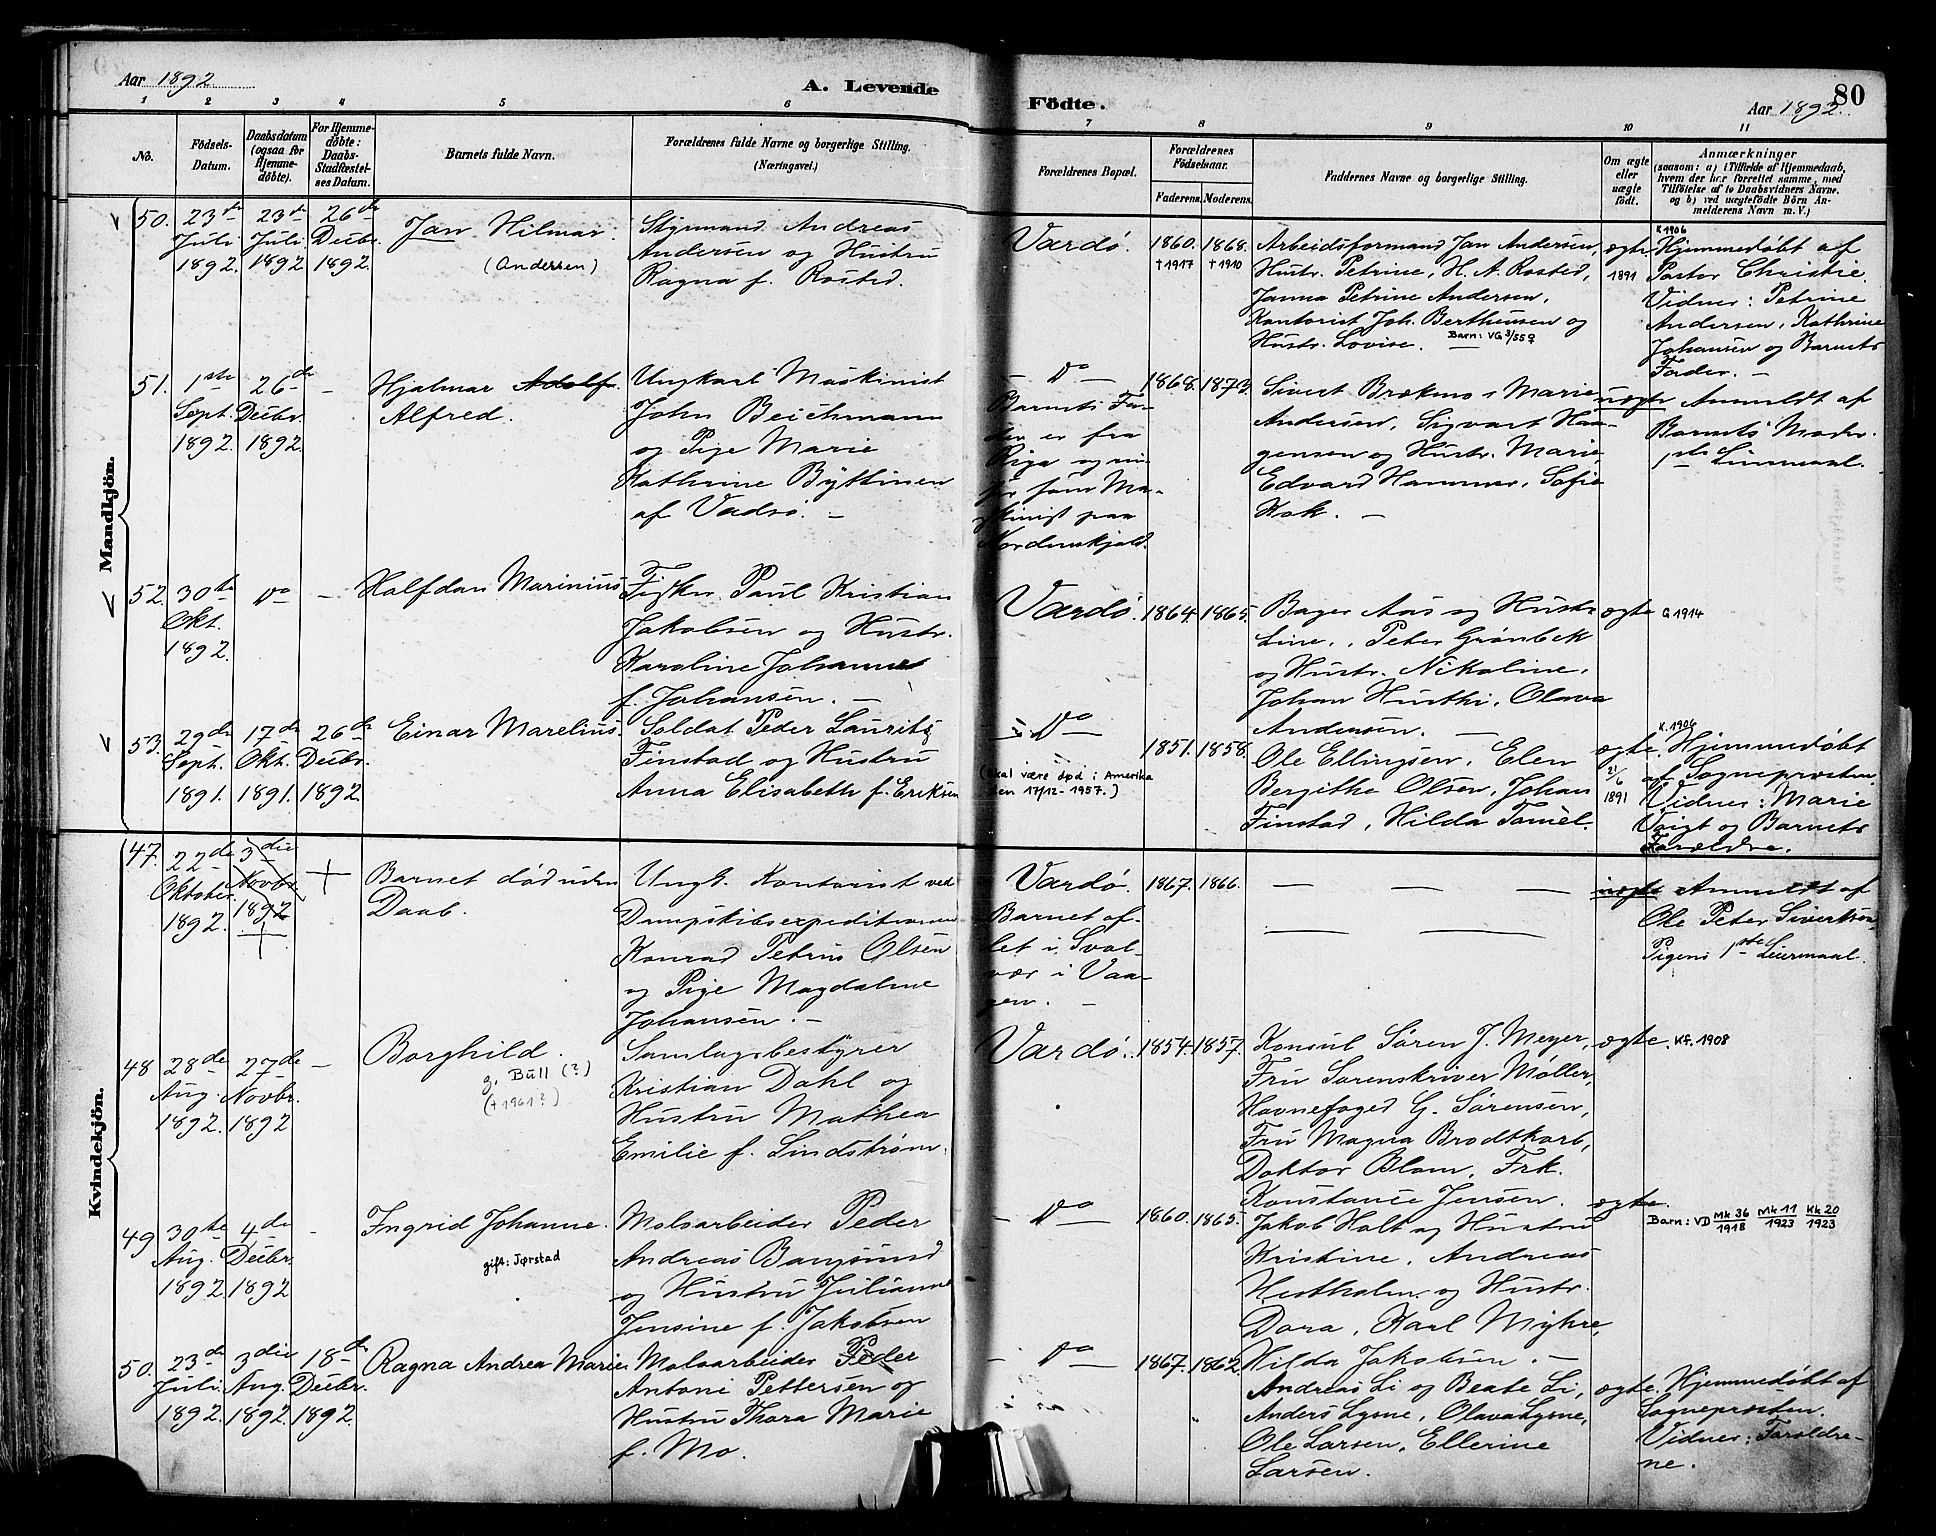 Aar 1892
A. Levende
Födte.
Aar 1892.
80
1 2 3 4 5 6 7 8 9 10 11
No.
Födsels-
Datum.
Daabsdatum
(ogsaa for
Hjemme-
döbte).
For Hjemme-
döbte:
Daabs-
Stadfæstel-
ses Datum.
Barnets fulde Navn.
Forældrenes fulde Navne og borgerlige Stilling.
(Næringsvei.)
Forældrenes Bopæl.
Forældrenes
Födselsaar.
Faderens. Moderens.
Faddernes Navne og borgerlige Stilling.
Om ægte
eller
uægte
födt.
Anmærkninger
(saasom: a) i Tilfælde af Hjemmedaab,
hvem der har forrettet samme, med
Tilföielse af to Daabsvidners Navne.
og b) ved uægtefödte Börn An-
melderens Navn m. V.)
Mandkjön.
50.
23de
Juli
1892.
23de
Juli
1892
26de
Decbr.
1892.
Jan Hilmar.
(Andersen)
Styrmand Andreas
Andersen og Hustru
Ragna f. Rosted.
Vardø.
1860.
†1917
1868.
†1910
Arbeidsformand Jan Andersen,
Hustr. Petrine, H. A. Rosted,
Janna Petrine Andersen,
Kontorist Joh. Berthensen og
Hustr. Lovise.
Barn: VG 3/559
ægte
1891
K 1906
Hjemmedøbt af
Pastor Christie.
Vidner: Petrine
Andersen, Kathrine
Johansen og Barnets
Fader. –
51.
1ste
Sept.
1892.
26de
Decbr.
1892.
–
Hjalmar Adolf
Alfred.
Ungkarl Maskinist
John Beichmann
og Pige Marie
Kathrine Byttinen
af Vadsø. –
– Do –
Barnets Fa-
der er fra
Riga og
for som Ma-
skinist paa
Nordenskjold.
1868.
1873.
Sivert Brækmo, Marie
Andersen, Sigvart Haa-
gensen og Hustr. Marie,
Edvard Hammer, Sofie
Kok. –
uægte
Anmeldt af
Barnets Moder.
1ste Leiermaal.
52.
30te
Okt.
1892.
Do
–
Halfdan Marinius
Fiskr. Paul Kristian
Jakobsen og Hustr.
Karoline Johanne
f. Johansen. –
Vardø.
1864.
1865.
Bager Aas og Hustr.
Line, Peter Grønbek
og Hustr. Nikoline,
Johan Husthi, Olava
Andersen. –
ægte
G 1914
53.
29de
Sept.
1891.
17de
Okt.
1891.
26de
Decbr.
1892.
Einar Marelius.
Soldat Peder Lauritz
Finstad og Hustru
Anna Elisabeth f. Eriksen
Do –
(Skal være død i Amerika
den 17/12-1957.)
1851.
1858.
Ole Ellingsen, Elen
Bergithe Olsen, Johan
Finstad, Hilda Tamèl.
ægte.
21/6
1891
K. 1906
Hjemmedøbt
af Sognepræsten.
Vidner: Marie
Voigt og Barnets
Forældre.
Kvindekjön.
47.
22de
Oktober.
1892.
3die
Novbr.
1892
Barnet død uden
Daab.
Ungk. Kontorist ved
Dampskibsexpeditionen
Konrad Petrus Olsen
og Pige Magdaline
Johansen. –
Vardø.
Barnet af-
let i Svol-
vær i Vaa-
gen. –
1867.
1866.
– – –
– – –
uægte
Anmeldt af
Ole Peter Sivertsen,
Pigens 1ste Leiermaal.
48
28de
Aug.
1892.
27de
Novbr.
1892
–
Borghild.
g. Bull (?)
(†1961?)
Samlagsbestyrer
Kristian Dahl og
Hustru Mathea
Emilie f. Lindstrøm.
Vardø.
1854.
1857.
Konsul Søren J. Meyer,
Fru Sorenskriver Møller,
Havnefoged G. Sørensen,
Fru Magna Brodtkorb,
Doktor Blom, Frk.
Konstance Jensen.
ægte.
Kf. 1908
49
30te
Aug.
1892.
4de
Decbr.
1892
–
Ingrid Johanne.
gift: Jørstad
Moloarbeider Peder
Andreas Bangsund
og Hustru Juliane
Jensine f. Jakobsen
– Do –
1860.
1865.
Jakob Holt og Hustru
Kristine, Andreas
Hestholm og Hustr.
Dora, Karl Myhre,
Hilda Jakobsen. –
ægte.
Barn: VD Mk 36/1918 Mk 11/1923 Kk 20/1923
50.
23de
Juli
1892.
3die
Aug.
1892.
18de
Decbr.
1892.
Ragna Andrea Marie
Moloarbeider Peder
Antoni Pettersen og
Hustru Thora Marie
f. Mo.
– Do –
1867.
1862.
Andreas Li og Beate Li,
Anders Lysne, Olava Lysne,
Ole Larsen, Ellerine
Larsen.
ægte.
Hjemmedøbt af
Sognepræsten.
Vidner: Forældre-
ne.